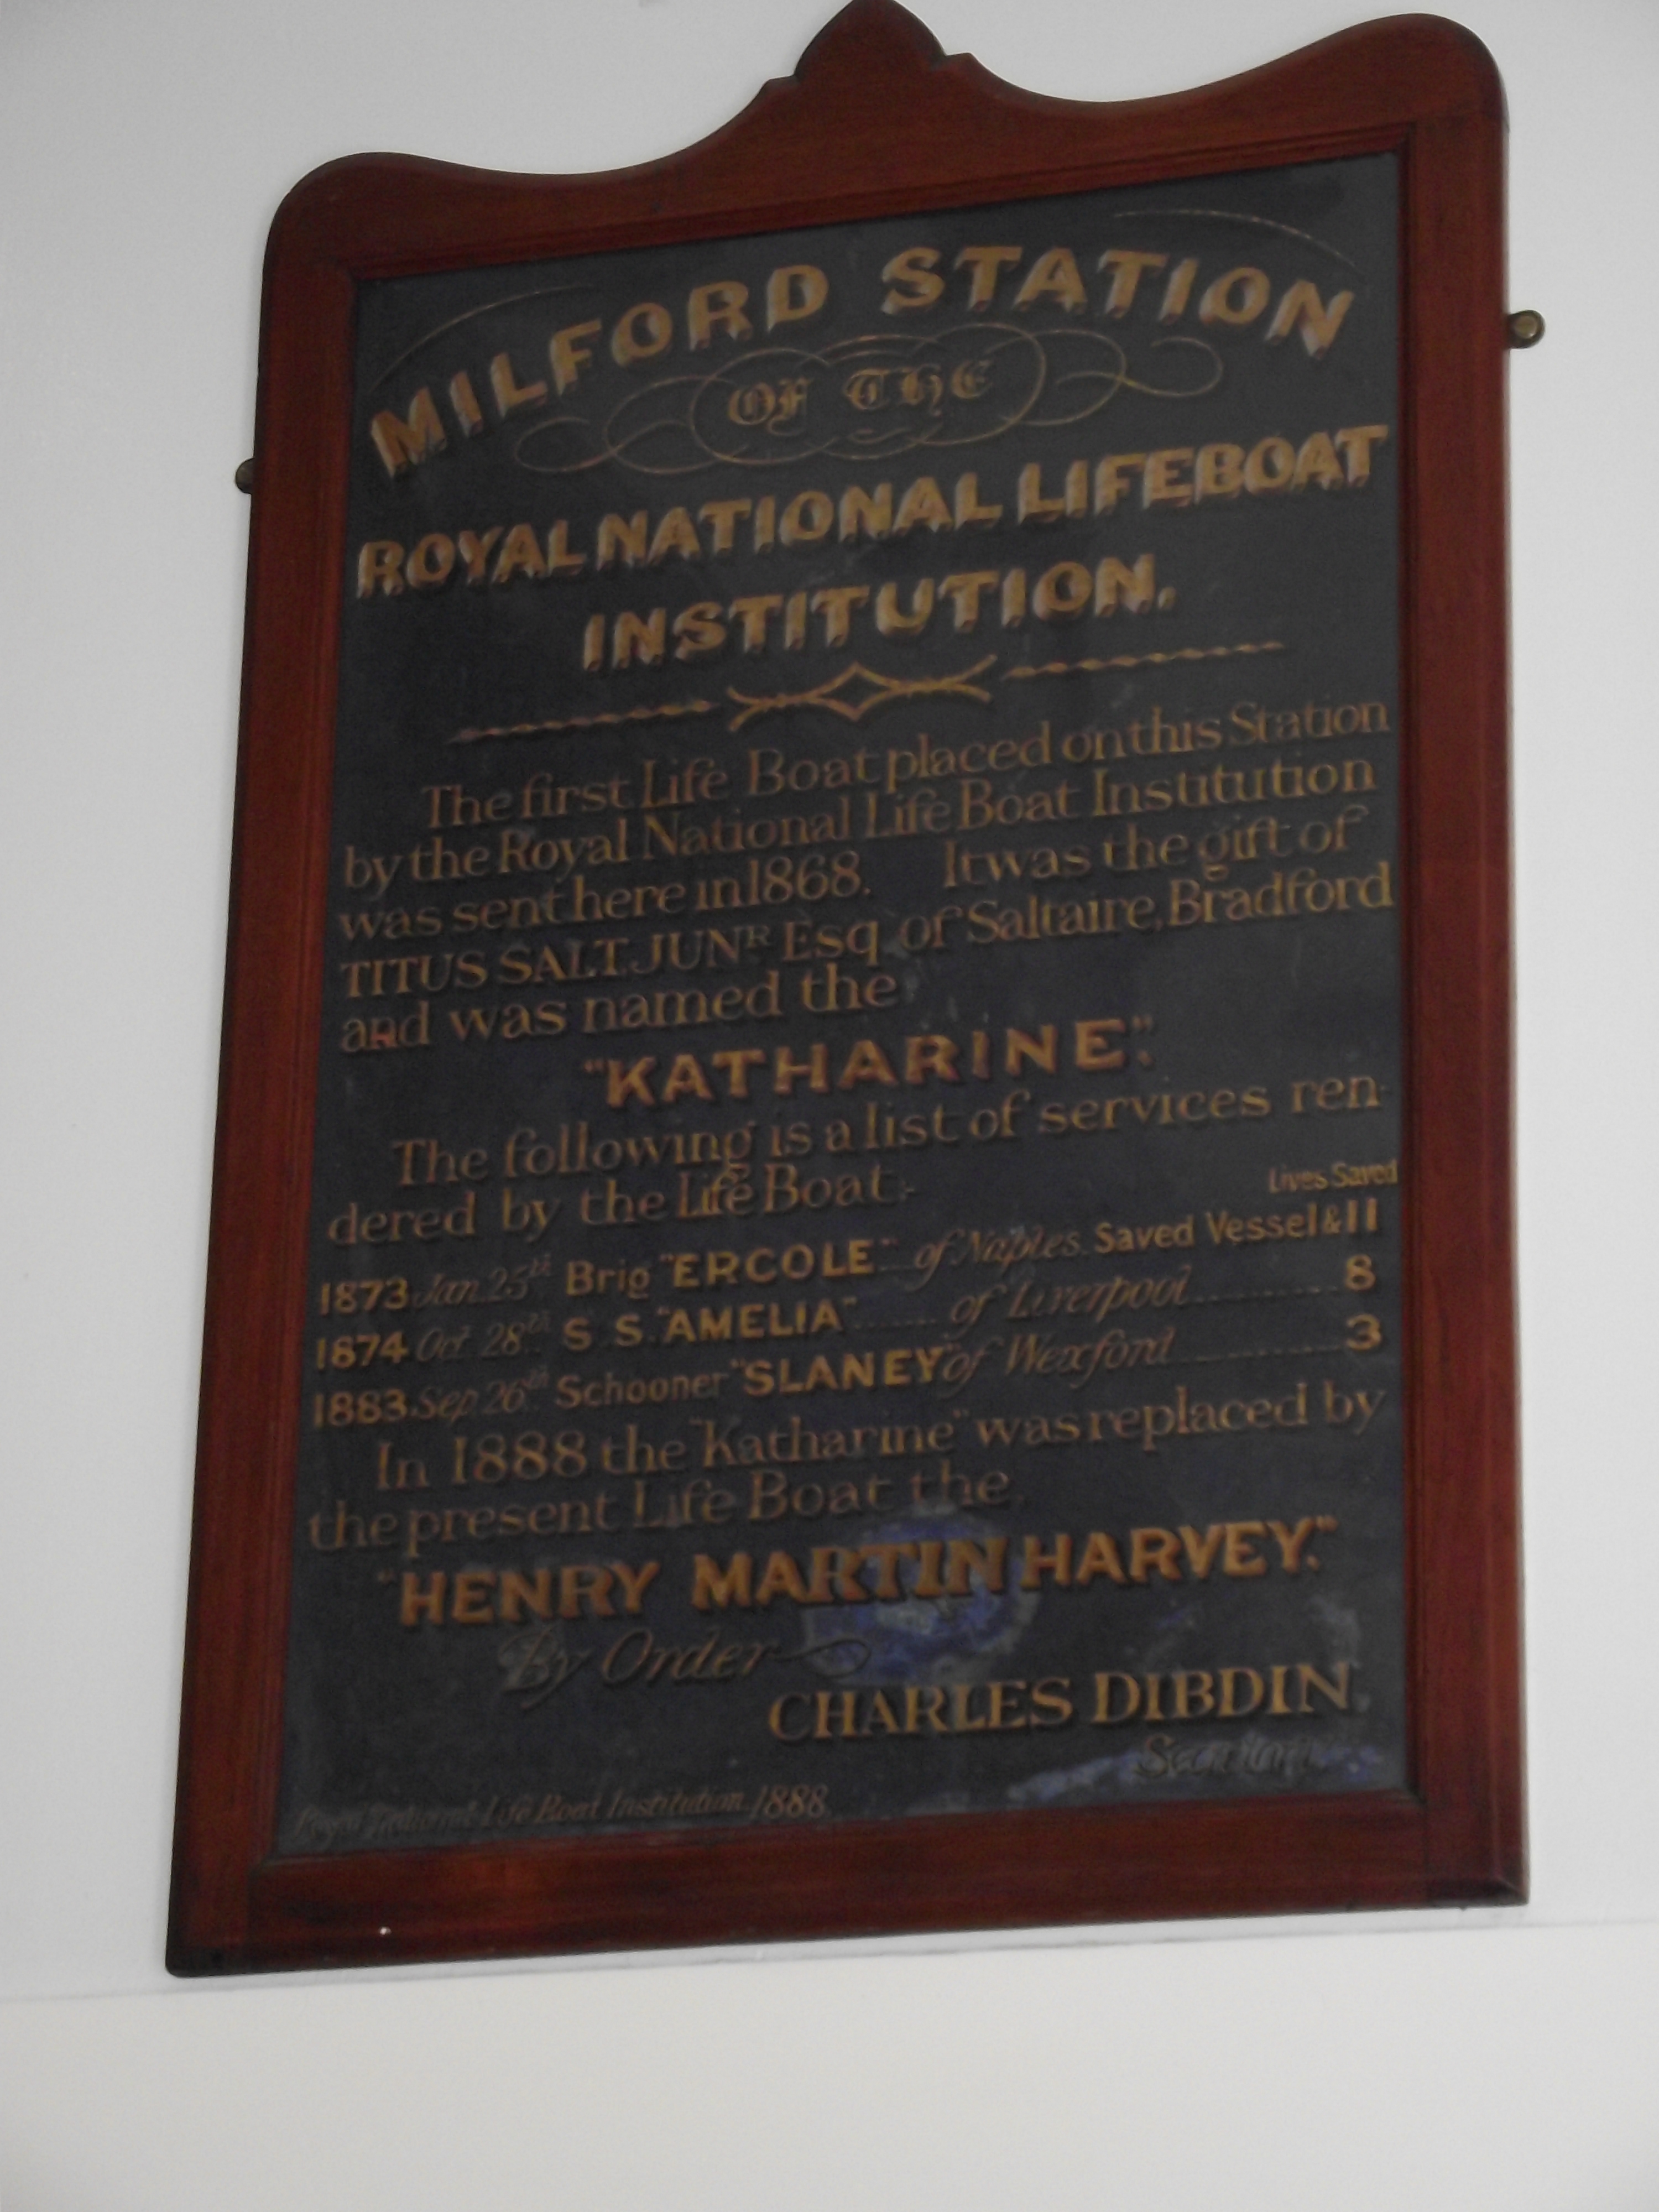 MILFORD STATION
OF THE
ROYAL NATIONAL LIFEBOAT
INSTITUTION.
The first Life Boat placed on this Station
by the Royal National Life Boat Institution
was sent here in 1868. It was the gift of
TITUS SALT. JUNR Esq. of Saltaire, Bradford
and was named the
"KATHARINE".
The following is a list of services ren-
dered by the Life Boat:-
Lives Saved
1873 Jan. 25th Brig "ERCOLE" of Naples. Saved Vessel & 11
1874 Oct. 28th S. S. "AMELIA" ....... of Liverpool .......... 8
1883 Sep. 26th Schooner "SLANEY" of Wexford .......... 3
In 1888 the "Katharine" was replaced by
the present Life Boat the
"HENRY MARTIN HARVEY."
By Order
CHARLES DIBDIN
Secretary
Royal National Life Boat Institution. 1888